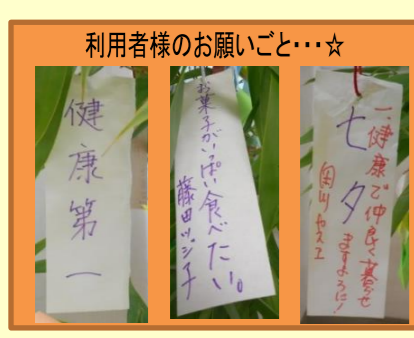 利用者様のお願いごと・・・☆
健康第一
お菓子がいっぱい食べたい。
藤田
一、健康で仲良く暮せ
ますように!
七夕